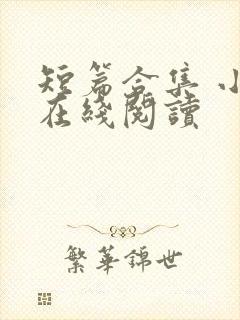 短篇合集 小
在线閱讀
繁華錦世